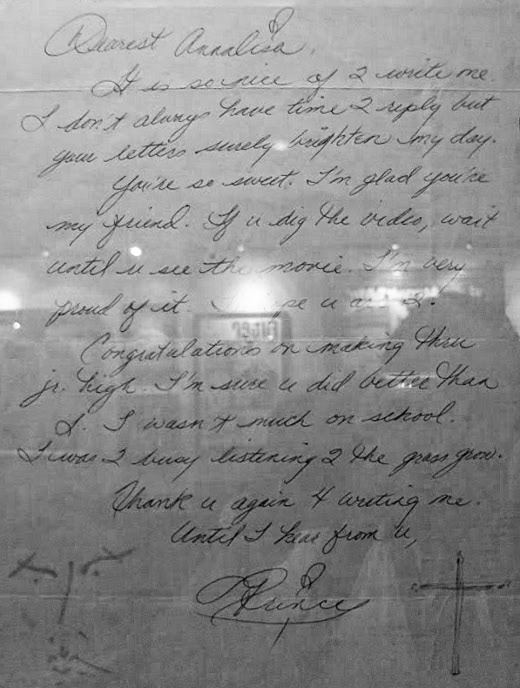 Dearest Annalisa,
It is so nice of 2 write me.
I don't always have time 2 reply but
your letters surely brighten my day.
You're so sweet. I'm glad you're
my friend. If u dig the video, wait
until u see the movie. I'm very
proud of it. I hope u are 2.
Congratulations on making thru
jr. high. I'm sure u did better than
I. I wasn't much on school.
I was 2 busy listening 2 the grass grow.
Thank u again 4 writing me.
Until I hear from u,
Prince